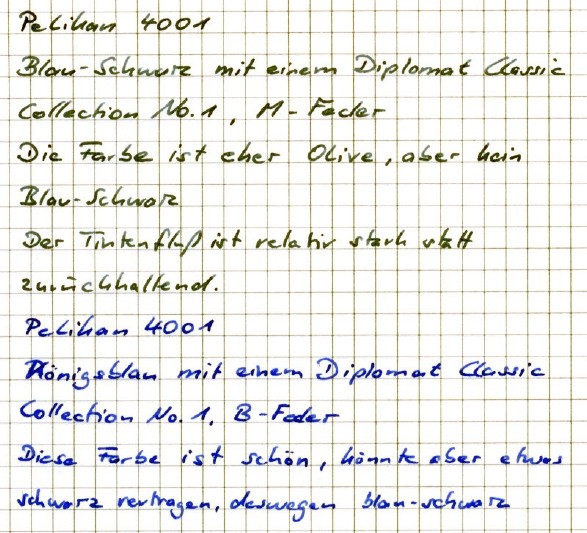 Pelikan 4001
Blau-Schwarz mit einem Diplomat Classic
Collection No. 1, M-Feder
Die Farbe ist eher Olive, aber kein
Blau-Schwarz
Der Tintenfluß ist relativ stark statt
zurückhaltend.
Pelikan 4001
Königsblau mit einem Diplomat Classic
Collection No. 1, B-Feder
Diese Farbe ist schön, könnte aber etwas
schwarz vertragen, deswegen blau-schwarz